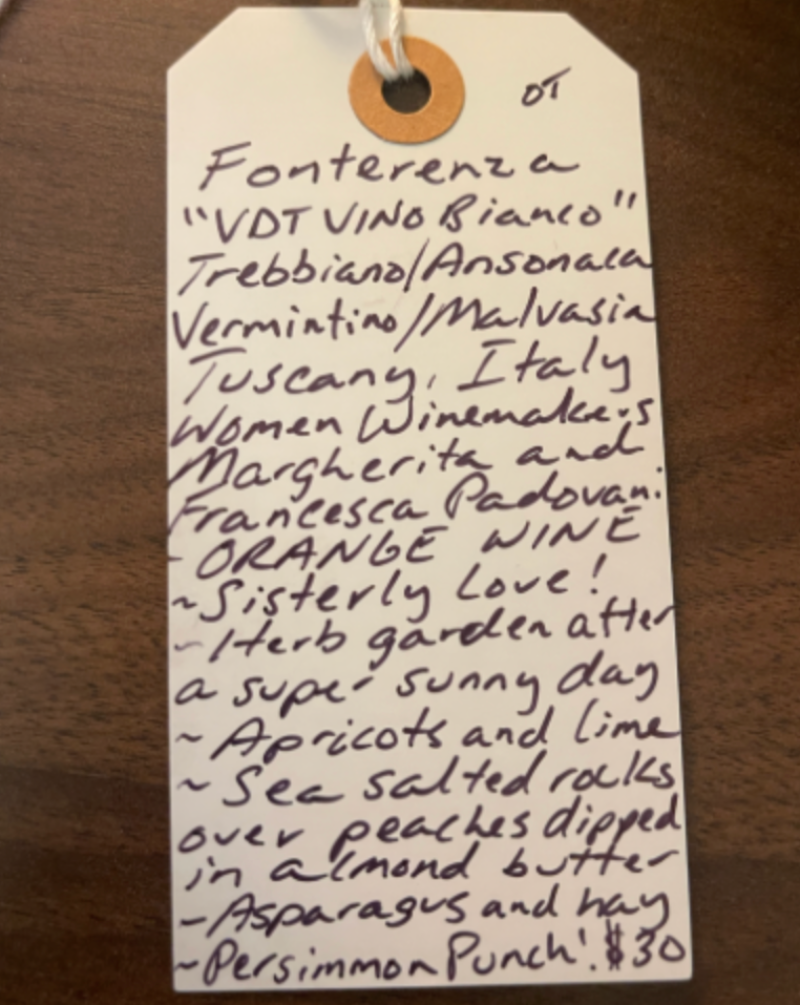 OT
Fonterenza
"VDT VINO Bianco"
Trebbiano/Ansonaca
Vermintino/Malvasia
Tuscany, Italy
Women Winemakers
Margherita and
Francesca Padovani
- ORANGE WINE
~ Sisterly Love!
~ Herb garden after
a super sunny day
~ Apricots and lime
~ Sea salted rocks
over peaches dipped
in almond butter
- Asparagus and hay
~ Persimmon Punch! $30